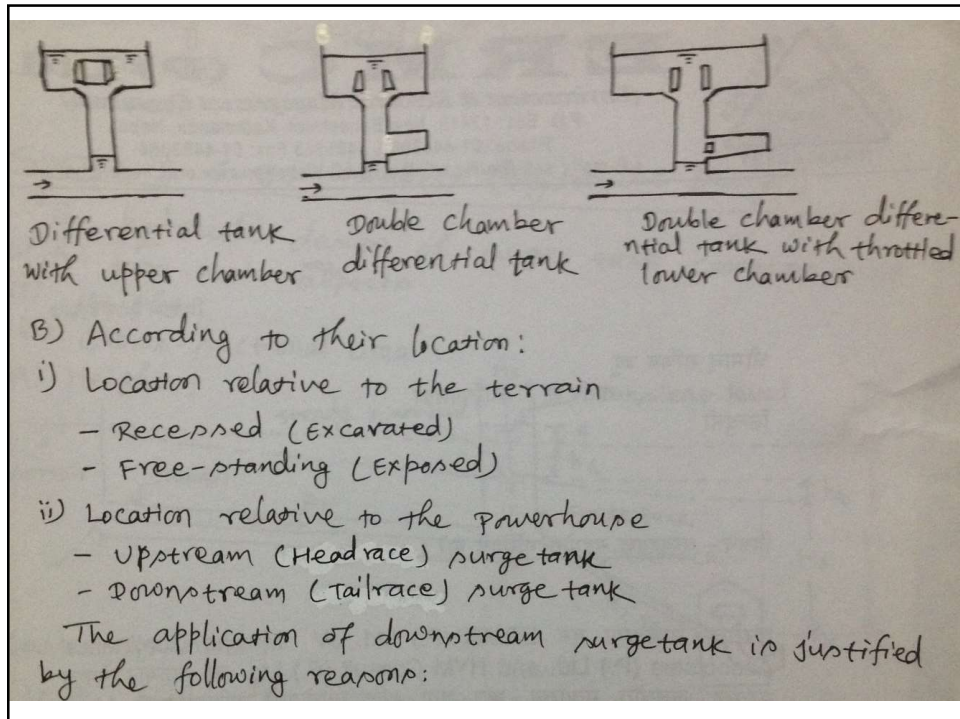 Differential tank
with upper chamber
Double chamber
differential tank
Double chamber differe-
ntial tank with throttled
lower chamber
B) According to their location:
i) Location relative to the terrain
- Recessed (Excavated)
- Free-standing (Exposed)
ii) Location relative to the powerhouse
- Upstream (Headrace) surge tank
- Downstream (Tailrace) surge tank
The application of downstream surgetank is justified
by the following reasons: